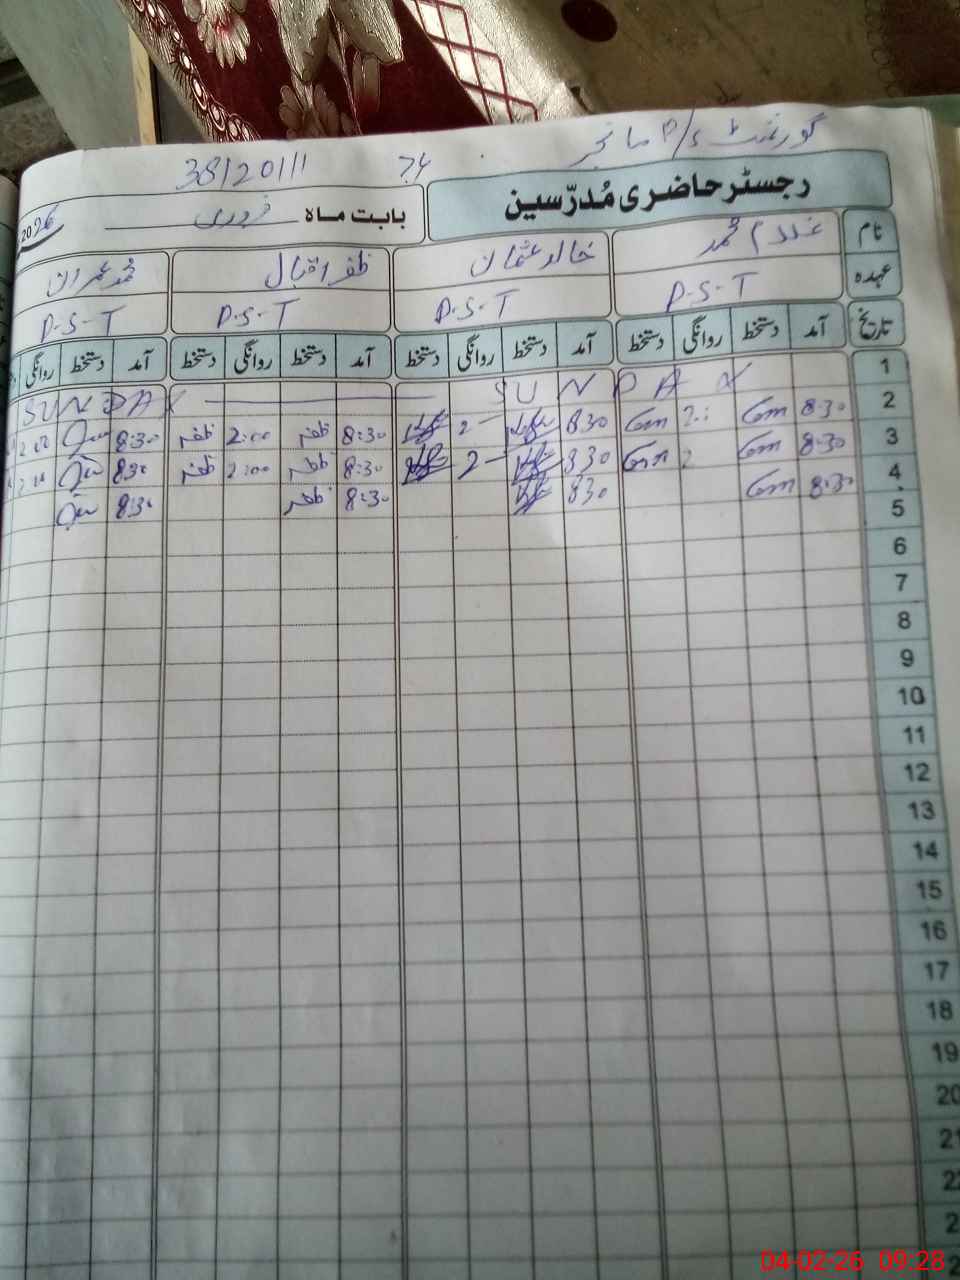 گورنمنٹ P/S مانجر
38120111
رجسٹر حاضری مُدرّسین
بابت ماہ فروری 2026
نام غلام محمد خالد عثمان ظفر اقبال محمد عمران
عہدہ P.S.T P.S.T P.S-T P.S-T
تاریخ آمد دستخط روانگی دستخط آمد دستخط روانگی دستخط آمد دستخط روانگی دستخط آمد دستخط روانگی
1 SUNDAY SUNDAY
2 8:30 Gm 2: Gm 830 2 8:30 ظفر 2:00 ظفر 8:30 2:00
3 8:30 Gm 2 Gm 830 2 8:30 ظفر 2:00 ظفر 830 2:00
4 8:30 Gm 830 8:30 ظفر 8:30
5
6
7
8
9
10
11
12
13
14
15
16
17
18
19
20
21
22
04-02-26 09:28